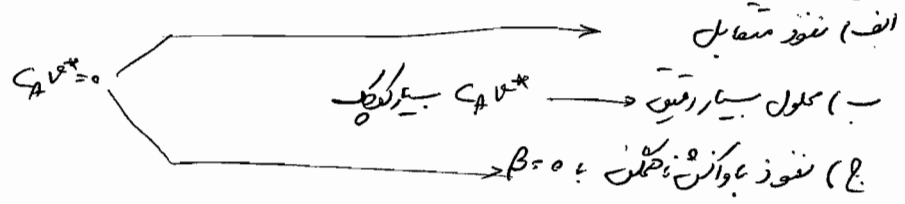 الف) نفوذ متقابل
C_A v* = 0
ب) محلول بسیار رقیق ← C_A v* بسیار کوچک
ج) نفوذ با واکنش ناهمگن با β = 0